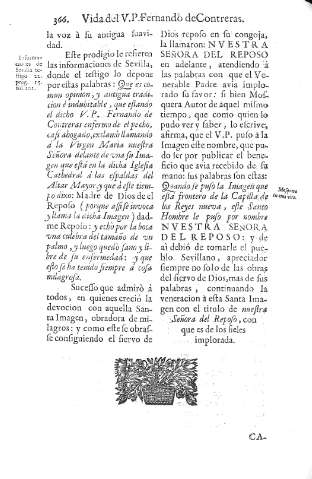 366. Vida del V.P. Fernando de Contreras.
la voz à su antigua suavi-
dad.
Este prodigio le refieren
las informaciones de Sevilla,
donde el testigo lo depone
por estas palabras: Que es co-
mun opinion, y antigua tradi-
cion è indubitable, que estando
el dicho V. P. Fernando de
Contreras enfermo de el pecho,
casi ahogado, exclamò llamando
à la Virgen Maria nuestra
Señora delante de vna su Ima-
gen que està en la dicha Iglesia
Cathedral à las espaldas del
Altar Mayor, y que à este tiem-
po dixo: Madre de Dios de el
Reposo (porque assi se invoca
y llama la dicha Imagen) dad-
me Reposo: y echò por la boca
vna culebra del tamaño de vn
palmo, y luego quedò sano y li-
bre de su enfermedad: y que
esto se ha tenido siempre à cosa
milagrosa.
Sucesso que admirò à
todos, en quienes creciò la
devocion con aquella San-
ta Imagen, obradora de mi-
lagros: y como este se obras-
se consiguiendo el siervo de
Dios reposo en su congoja,
la llamaron: NVESTRA
SEÑORA DEL REPOSO
en adelante, atendiendo à
las palabras con que el Ve-
nerable Padre avia implo-
rado su favor: si bien Mos-
quera Autor de aquel mismo
tiempo, que como quien lo
pudo ver y saber, lo escrive,
afirma, que el V.P. puso à la
Imagen este nombre, que pu-
do ser por publicar el bene-
ficio que avia recebido de su
mano: sus palabras son estas:
Quando se puso la Imagen que
està frontero de la Capilla de
los Reyes nueva, este Santo
Hombre le puso por nombre
NVESTRA SEÑORA
DEL REPOSO: y de a-
i debiò de tomarle el pue-
blo Sevillano, apreciador
siempre no solo de las obras
del siervo de Dios, mas de sus
palabras, continuando la
veneracion à esta Santa Ima-
gen con el titulo de nuestra
Señora del Reposo, con
que es de los fieles
implorada.
CA-